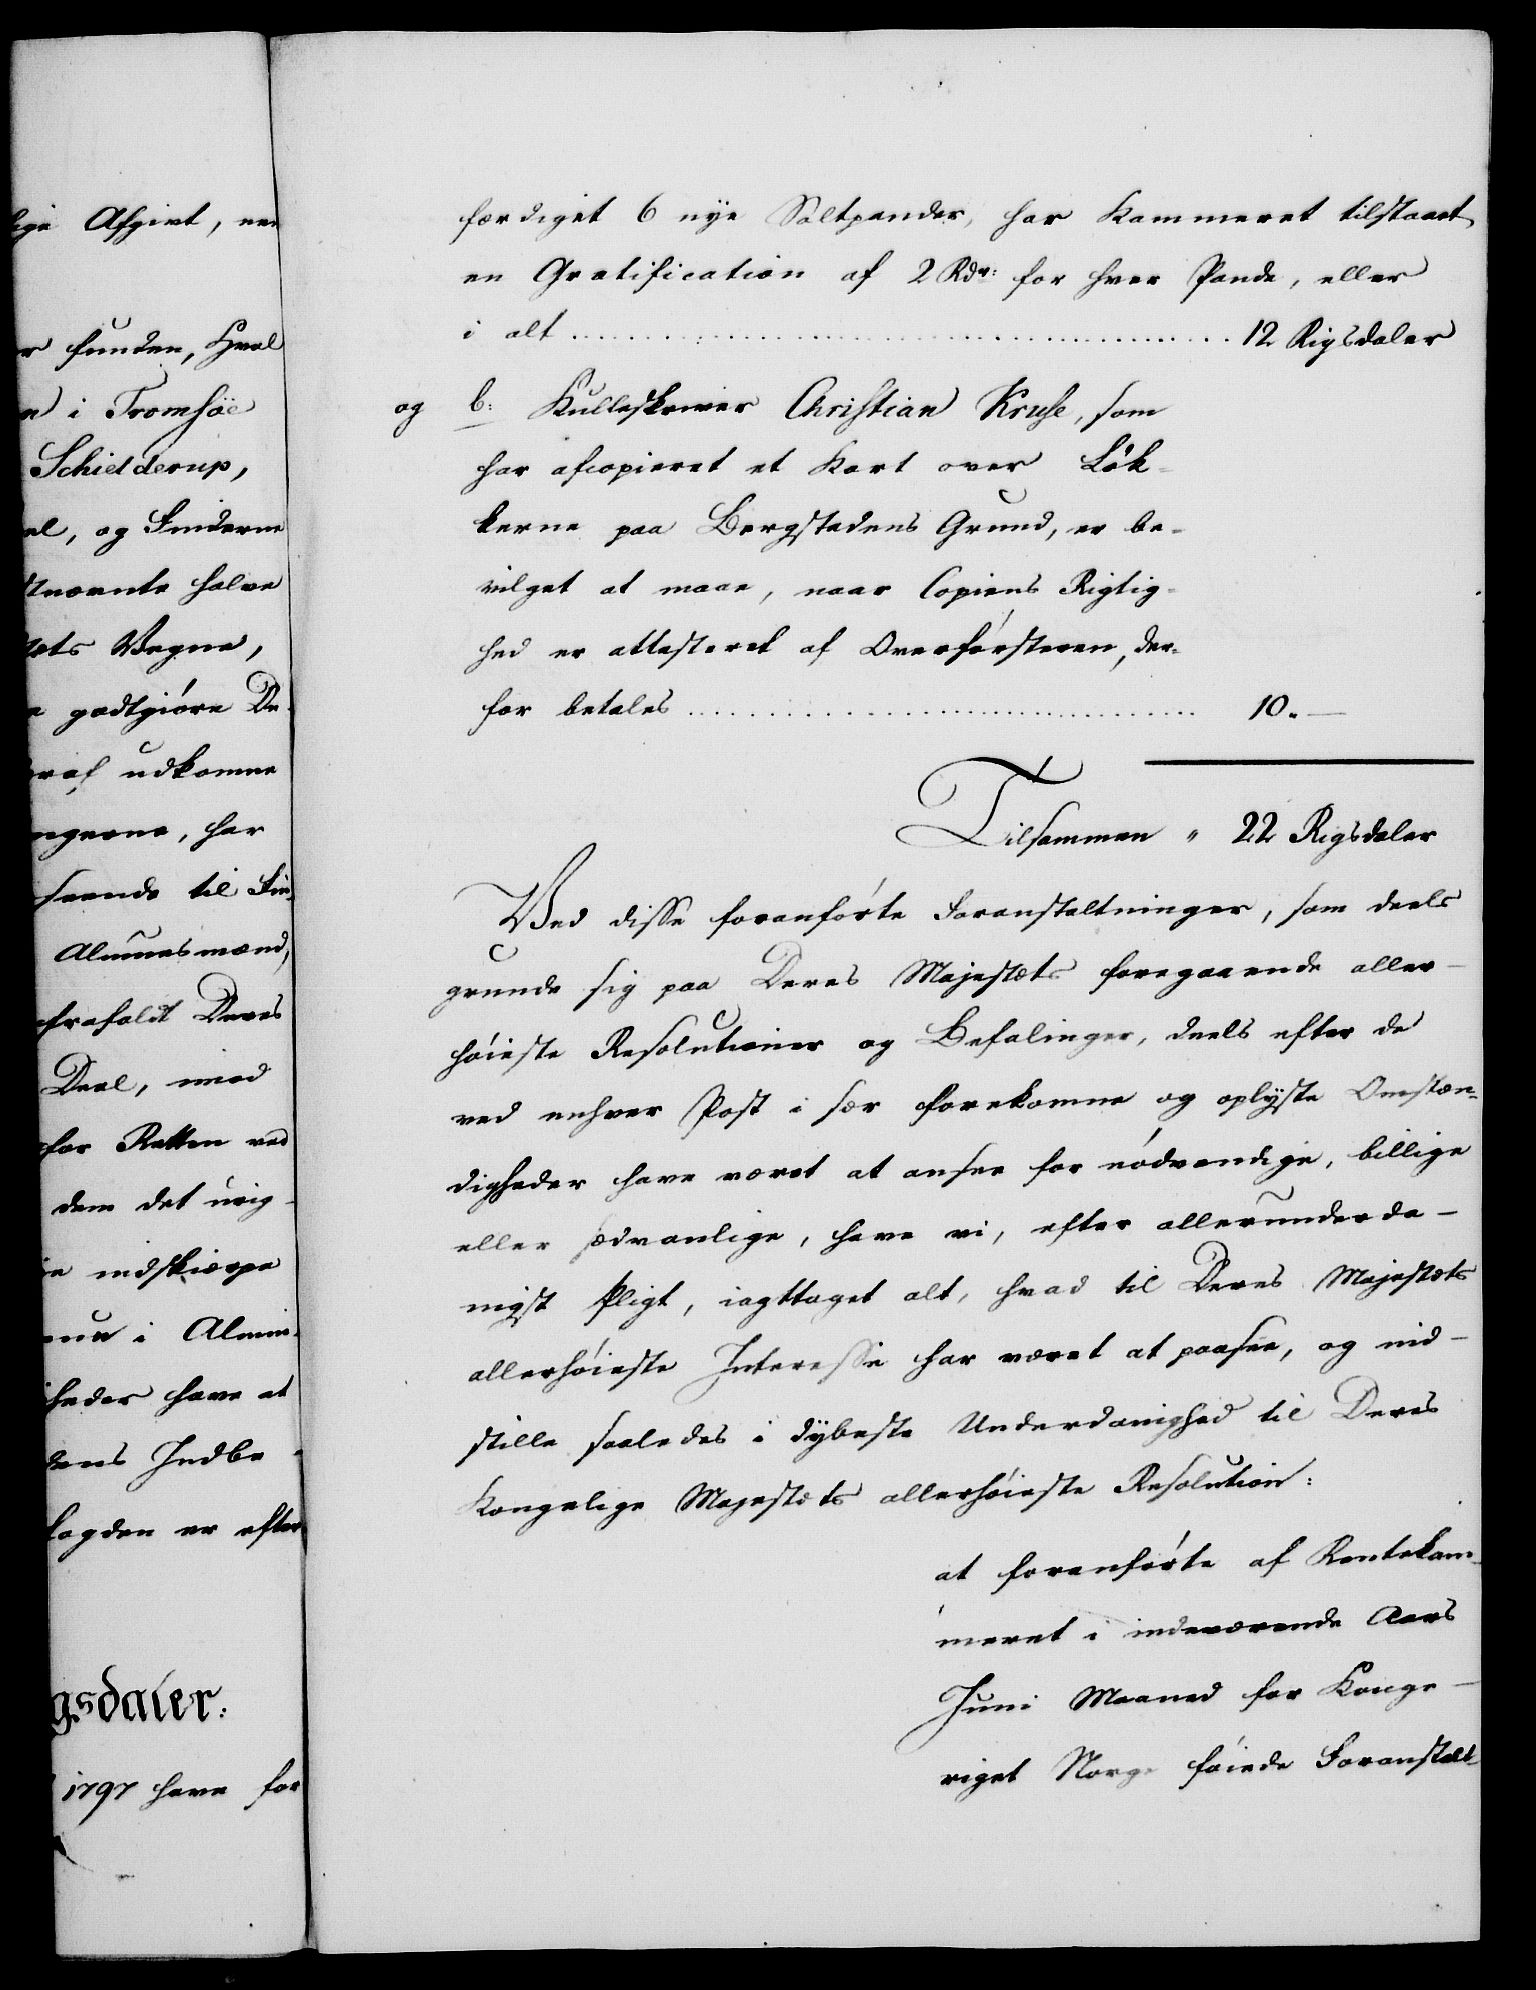 lige Afgivt, naar
r funden, Hval
n i Tromsöe
Schielderup,
el, og Finderne
tnævnte halve
tæts Vegne,
e godtgiöre De-
eraf udkomne
ngerne, har
seende til Fin-
Almuesmænd,
efraholdt Deres
Deel, imod
for Retten ved
dem det urig-
e indskiærpe
i Almin-
heder have at
dens Indbe-
fogden er efter
gsdaler:
1797 have for
færdiget 6 nye Saltpander, har Kammeret tilstaaet
en Gratification af 2 Rdr: for hver Pande, eller
i alt ........ 12 Rigsdaler
og b: Kulleskriver Christian Kruse, som
har afcopieret et Kart over Lök-
kerne paa Bergstadens Grund, er be-
vilget at maae, naar Copiens Rigtig-
hed er attesteret af Overförsteren, der-
for betales ........ 10.—
Tilsammen " 22 Rigsdaler
Ved disse foranförte Foranstaltninger, som deels
grunde sig paa Deres Majestæts foregaaende aller-
höieste Resolutioner og Befalinger, deels efter de
ved enhver Post i sær forekomne og oplyste Omstæn-
digheder have været at ansee for nödvendige, billige
eller sædvanlige, have vi, efter allerunderda-
nigst Pligt, iagttaget alt, hvad til Deres Majestæts
allerhöieste Interesse har været at paasee, og ind-
stille saaledes i dybeste Underdanighed til Deres
Kongelige Majestæts allerhöieste Resolution:
at foranförte af Rentekam-
meret i indeværende Aars
Juni Maaned for Konge-
riget Norge föiede Foranstalt-